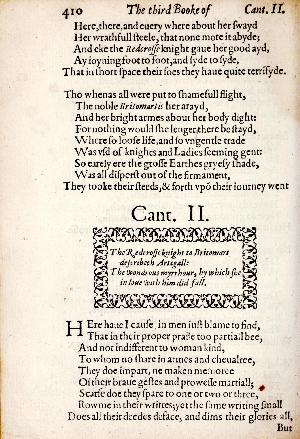 410 The third Booke of Cant. II.
Here, there, and euery where about her swayd
Her wrathfull steele, that none mote it abyde;
And eke the Redcrosse knight gaue her good ayd,
Ay ioyning foot to foot, and syde to syde,
That in short space their foes they haue quite terrifyde.
Tho whenas all were put to shamefull flight,
The noble Britomartis her arayd,
And her bright armes about her body dight:
For nothing would she lenger there be stayd,
Where so loose life, and so vngentle trade
Was vsd of knights and Ladies seeming gent:
So earely ere the grosse Earthes gryesy shade,
Was all disperst out of the firmament,
They tooke their steeds, & forth vpõ their iourney went
Cant. II.
The Redcrosse knight to Britomart
describeth Artegall:
The wondrous myrrhour, by which she
in loue with him did fall.
HEre haue I cause, in men iust blame to find,
That in their proper praise too partiall bee,
And not indifferent to woman kind,
To whom no share in armes and cheualree,
They doe impart, ne maken memoree
Of their braue gestes and prowesse martiall;
Scarse doe they spare to one or two or three,
Rowme in their writtes; yet the same writing small
Does all their deedes deface, and dims their glories all,
But